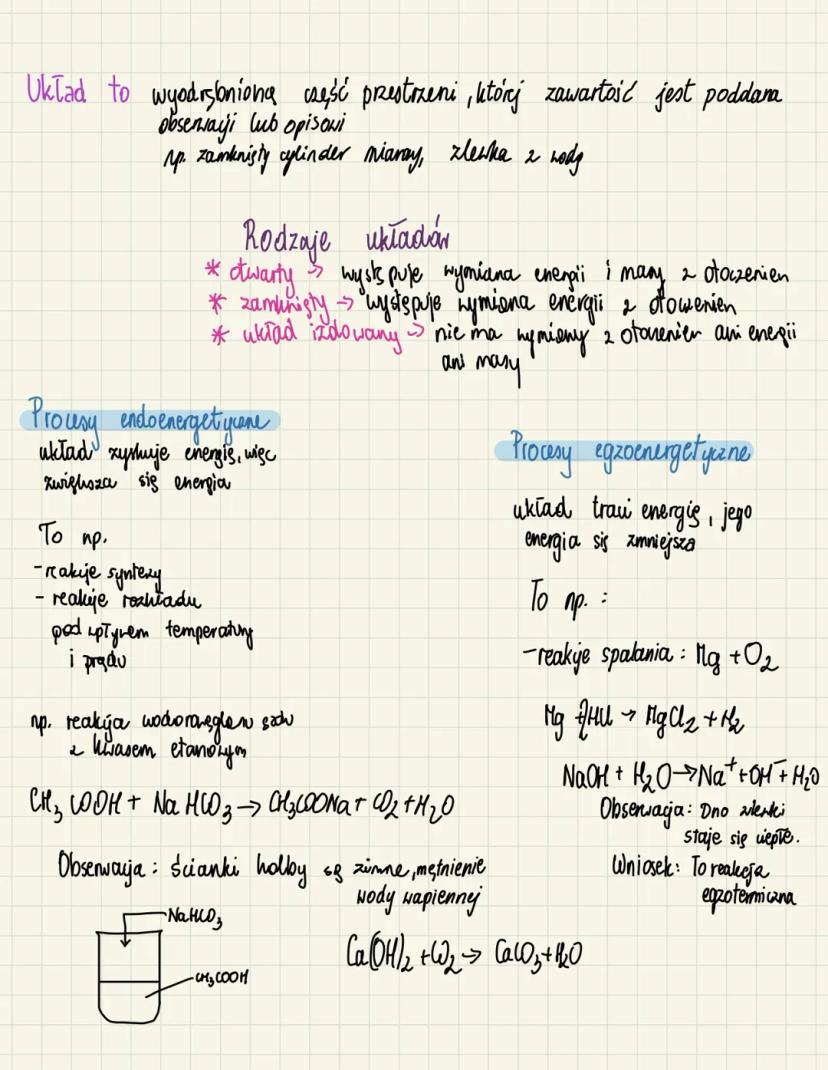 Układ to wyodrębniona część przestrzeni, której zawartość jest poddana
obserwacji lub opisowi
np. zamknięty cylinder miarowy, zlewka z wodą
Rodzaje układów
* otwarty → występuje wymiana energii i masy z otoczeniem
* zamknięty → występuje wymiana energii z otoczeniem
* układ izolowany → nie ma wymiany z otoczeniem ani energii
ani masy
Procesy endoenergetyczne
układ zyskuje energię, więc
zwiększa się energia
To np.
- reakcje syntezy
- reakcje rozkładu
pod wpływem temperatury
i prądu
np. reakcja wodorowęglanu sodu
z kwasem etanowym
CH₃COOH + NaHCO₃ → CH₃COONa + CO₂ + H₂O
Obserwacja: ścianki kolby są zimne, mętnienie
wody wapiennej
NaHCO₃
CH₃COOH
Ca(OH)₂ + CO₂ → CaCO₃ + H₂O
Procesy egzoenergetyczne
układ traci energię, jego
energia się zmniejsza
To np. :
- reakcje spalania : Mg + O₂
Mg + 2HCl → MgCl₂ + H₂
NaOH + H₂O → Na⁺ + OH⁻ + H₂O
Obserwacja: Dno zlewki
staje się ciepłe.
Wniosek: To reakcja
egzotermiczna